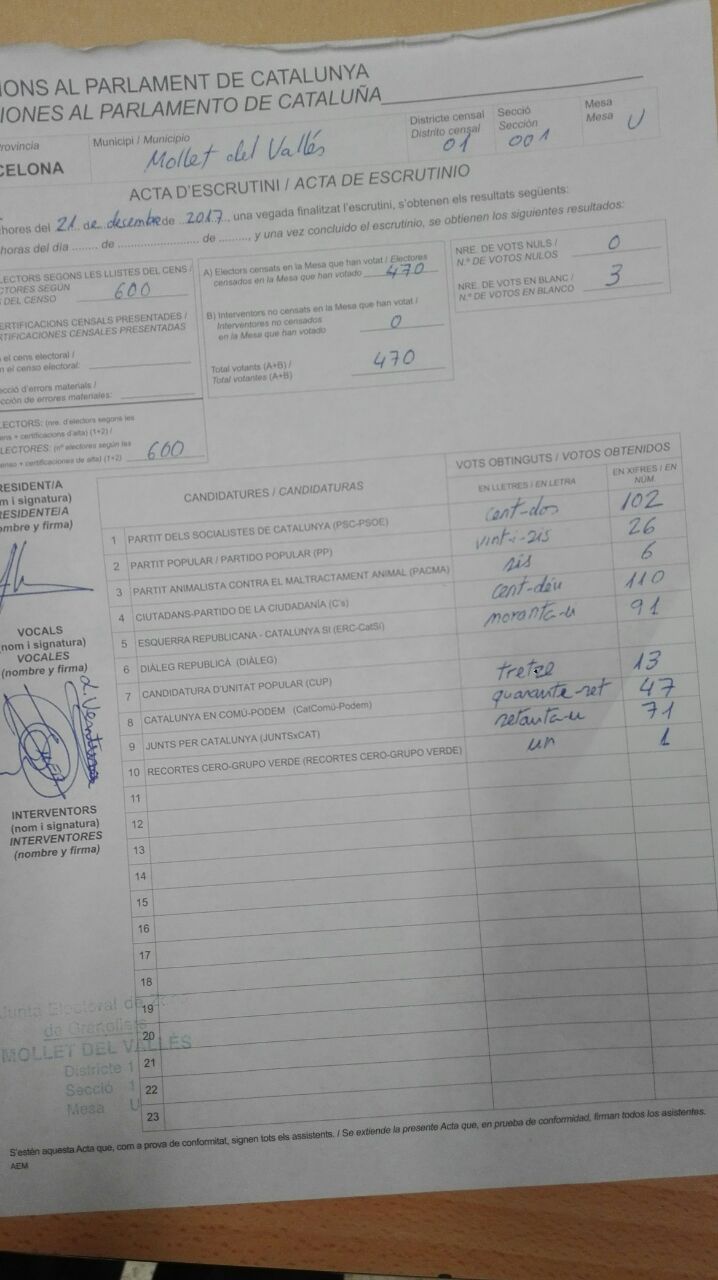 IONS AL PARLAMENT DE CATALUNYA
IONES AL PARLAMENTO DE CATALUÑA
rovincia
CELONA
Municipi / Municipio
Mollet del Vallés
Districte censal
Distrito censal
01
Secció
Sección
001
Mesa
Mesa
U
ACTA D'ESCRUTINI / ACTA DE ESCRUTINIO
hores del 21 de desembre de 2017, una vegada finalitzat l'escrutini, s'obtenen els resultats següents:
horas del día ........ de ........................ de .........., y una vez concluido el escrutinio, se obtienen los siguientes resultados:
LECTORS SEGONS LES LLISTES DEL CENS /
CTORES SEGÚN
DEL CENSO
600
ERTIFICACIONS CENSALS PRESENTADES /
RTIFICACIONES CENSALES PRESENTADAS
n el cens electoral /
n el censo electoral:
ecció d'errors materials /
cción de errores materiales:
LECTORS: (nre. d'electors segons les
ens + certificacions d'alta) (1+2) /
LECTORES: (nº electores según las
enso + certificaciones de alta) (1+2)
600
A) Electors censats en la Mesa que han votat / Electores
censados en la Mesa que han votado
470
B) Interventors no censats en la Mesa que han votat /
Interventores no censados
en la Mesa que han votado
0
Total votants (A+B) /
Total votantes (A+B)
470
NRE. DE VOTS NULS /
N.º DE VOTOS NULOS
0
NRE. DE VOTS EN BLANC /
N.º DE VOTOS EN BLANCO
3
RESIDENT/A
m i signatura)
RESIDENTE/A
ombre y firma)
VOCALS
(nom i signatura)
VOCALES
(nombre y firma)
INTERVENTORS
(nom i signatura)
INTERVENTORES
(nombre y firma)
CANDIDATURES / CANDIDATURAS
VOTS OBTINGUTS / VOTOS OBTENIDOS
EN LLETRES / EN LETRA
EN XIFRES / EN NÚM.
1 PARTIT DELS SOCIALISTES DE CATALUNYA (PSC-PSOE) cent-dos 102
2 PARTIT POPULAR / PARTIDO POPULAR (PP) vint-i-sis 26
3 PARTIT ANIMALISTA CONTRA EL MALTRACTAMENT ANIMAL (PACMA) sis 6
4 CIUTADANS-PARTIDO DE LA CIUDADANÍA (C's) cent-deu 110
5 ESQUERRA REPUBLICANA - CATALUNYA SI (ERC-CatSí) noranta-u 91
6 DIÀLEG REPUBLICÀ (DIÀLEG)
7 CANDIDATURA D'UNITAT POPULAR (CUP) tretze 13
8 CATALUNYA EN COMÚ-PODEM (CatComú-Podem) quaranta-set 47
9 JUNTS PER CATALUNYA (JUNTSxCAT) setanta-u 71
10 RECORTES CERO-GRUPO VERDE (RECORTES CERO-GRUPO VERDE) un 1
11
12
13
14
15
16
17
18
19
20
21
22
23
Junta Electoral de Zona
de Granollers
MOLLET DEL VALLÈS
Districte 1
Secció 1
Mesa U
S'estén aquesta Acta que, com a prova de conformitat, signen tots els assistents. / Se extiende la presente Acta que, en prueba de conformidad, firman todos los asistentes.
AEM